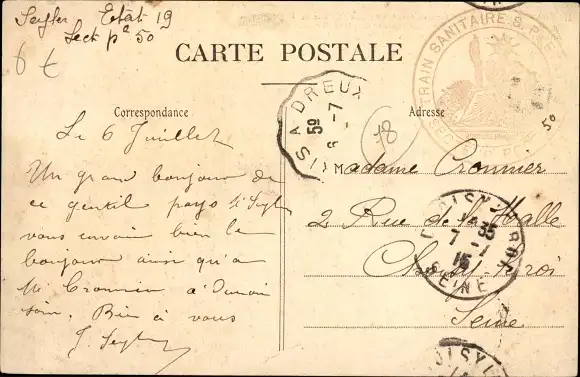 Seyler Etat 19
Sect pal 50
6 €
CARTE POSTALE
Correspondance
Adresse
TRAIN SANITAIRE
A DREUX
59
6 -7
78
50
Le 6 Juillet
Un grand bonjour de
ce gentil pays
vous envoie bien le
bonjour ainsi qu'a
Mr Cronnier à
Bien à vous
Madame Cronnier
2 Rue de la Halle
Choisy-le-Roi
Seine
CHOISY-LE-ROI
7 35
7 -7
15
SEINE